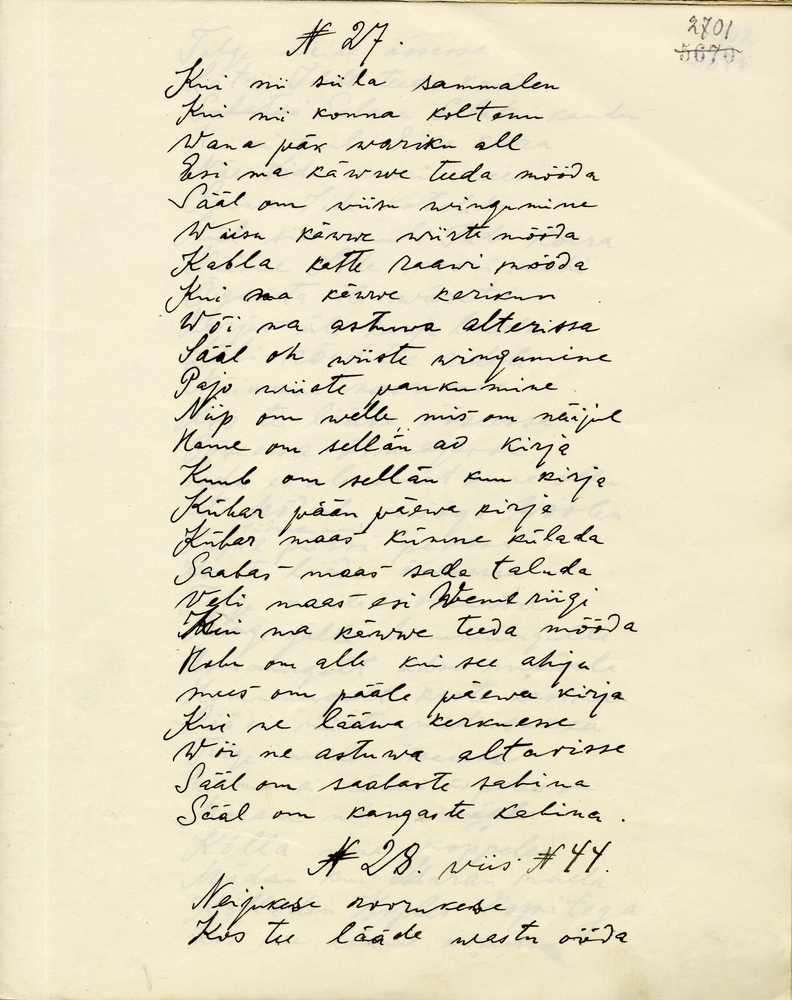 2701
5670
N 27.
Kui nii siila sammalen
Kui nii konna koltenn
Wana pää wariku all
Esi ma käwwe teeda mööda
Sääl om wiisu wingumine
Waisu käwwe wiirte mööda
Kabla katte raawi mööda
Kui ma käwwe kerikun
Wõi na astuwa alterissa
Sääl oh wiiste wingumine
Pajo wiiste paukumine
Niip om welle mis om näijul
Hame om sellän ao kirja
Kuub om sellän kuu kirja
Kübar pään päewa kirja
Kübar maas kümme külada
Saabas maas sada taluda
Veli maas esi Wenne riigi
Kui ma käwwe teeda mööda
Hobu om alle kui see ahju
mees om pääle päewa kirja
Kui ne lääwa kerkuesse
Wõi ne astuwa altarisse
Sääl om saabaste sabina
Sääl om kangaste kabina.
N 28. viis N 44.
Neijukese noorukese
Kos te lääde wastu ööda